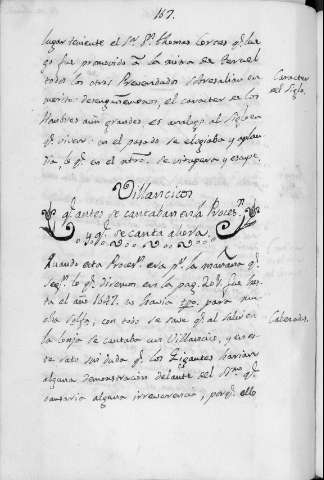 167.
lugar teniente el Sr. Dn. Thomas Cortes qe. lue
go fue promovido a la mitra de Teruel
todos los otros Prevendados sobresalian en
merito: desengañemonos, el caracter de los
Hombres aun grandes es analogo al Siglo en
qe. viven: en el pasado se elogiaba y aplau
dia, lo qe. en el otro se vitupera y escupe.
Caracter
del Siglo.
Villancicos
qe. antes se cantaban en la Procesn.
y qe. se canta ahora.
Quando esta Procesn. era pr. la mañana qe.
segn. lo qe. diximos en la pag. 201 fue has
ta el año 1647. no havia tpo. para mu
cha solfa; con todo se save qe. al salir en
la Lonja se cantaba un Villancico, y en es
te rato sin duda qe. los Gigantes harian
alguna demonstracion delante del Smo. qe.
causaria alguna irreverencia, porqe. ello
Cabezudos.